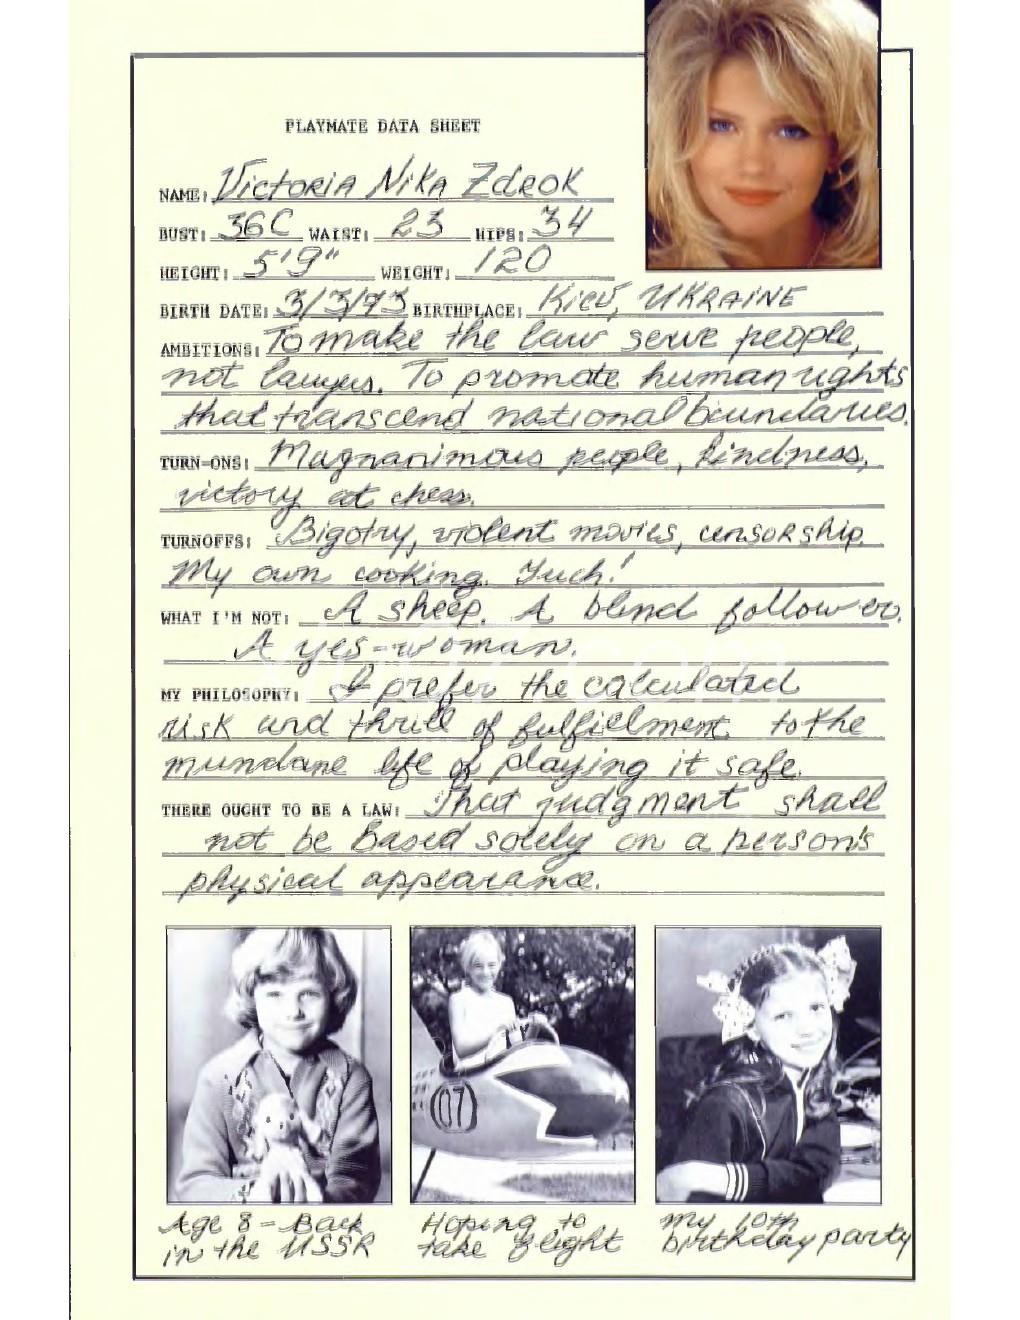 PLAYMATE DATA SHEET
NAME: Victoria Nika Zdrok
BUST: 36C WAIST: 23 HIPS: 34
HEIGHT: 5'9" WEIGHT: 120
BIRTH DATE: 3/3/73 BIRTHPLACE: Kiev, UKRAINE
AMBITIONS: To make the law serve people,
not lawyers. To promote human rights
that transcend national boundaries.
TURN-ONS: Magnanimous people, kindness,
victory at chess.
TURNOFFS: Bigotry, violent movies, censorship.
My own cooking. Yuch!
WHAT I'M NOT: A sheep. A blind follower.
A yes-woman.
MY PHILOSOPHY: I prefer the calculated
risk and thrill of fulfillment to the
mundane life of playing it safe.
THERE OUGHT TO BE A LAW: That judgment shall
not be based solely on a person's
physical appearance.
(07)
Age 8 - Back
in the USSR
Hoping to
take flight
My 10th
birthday party